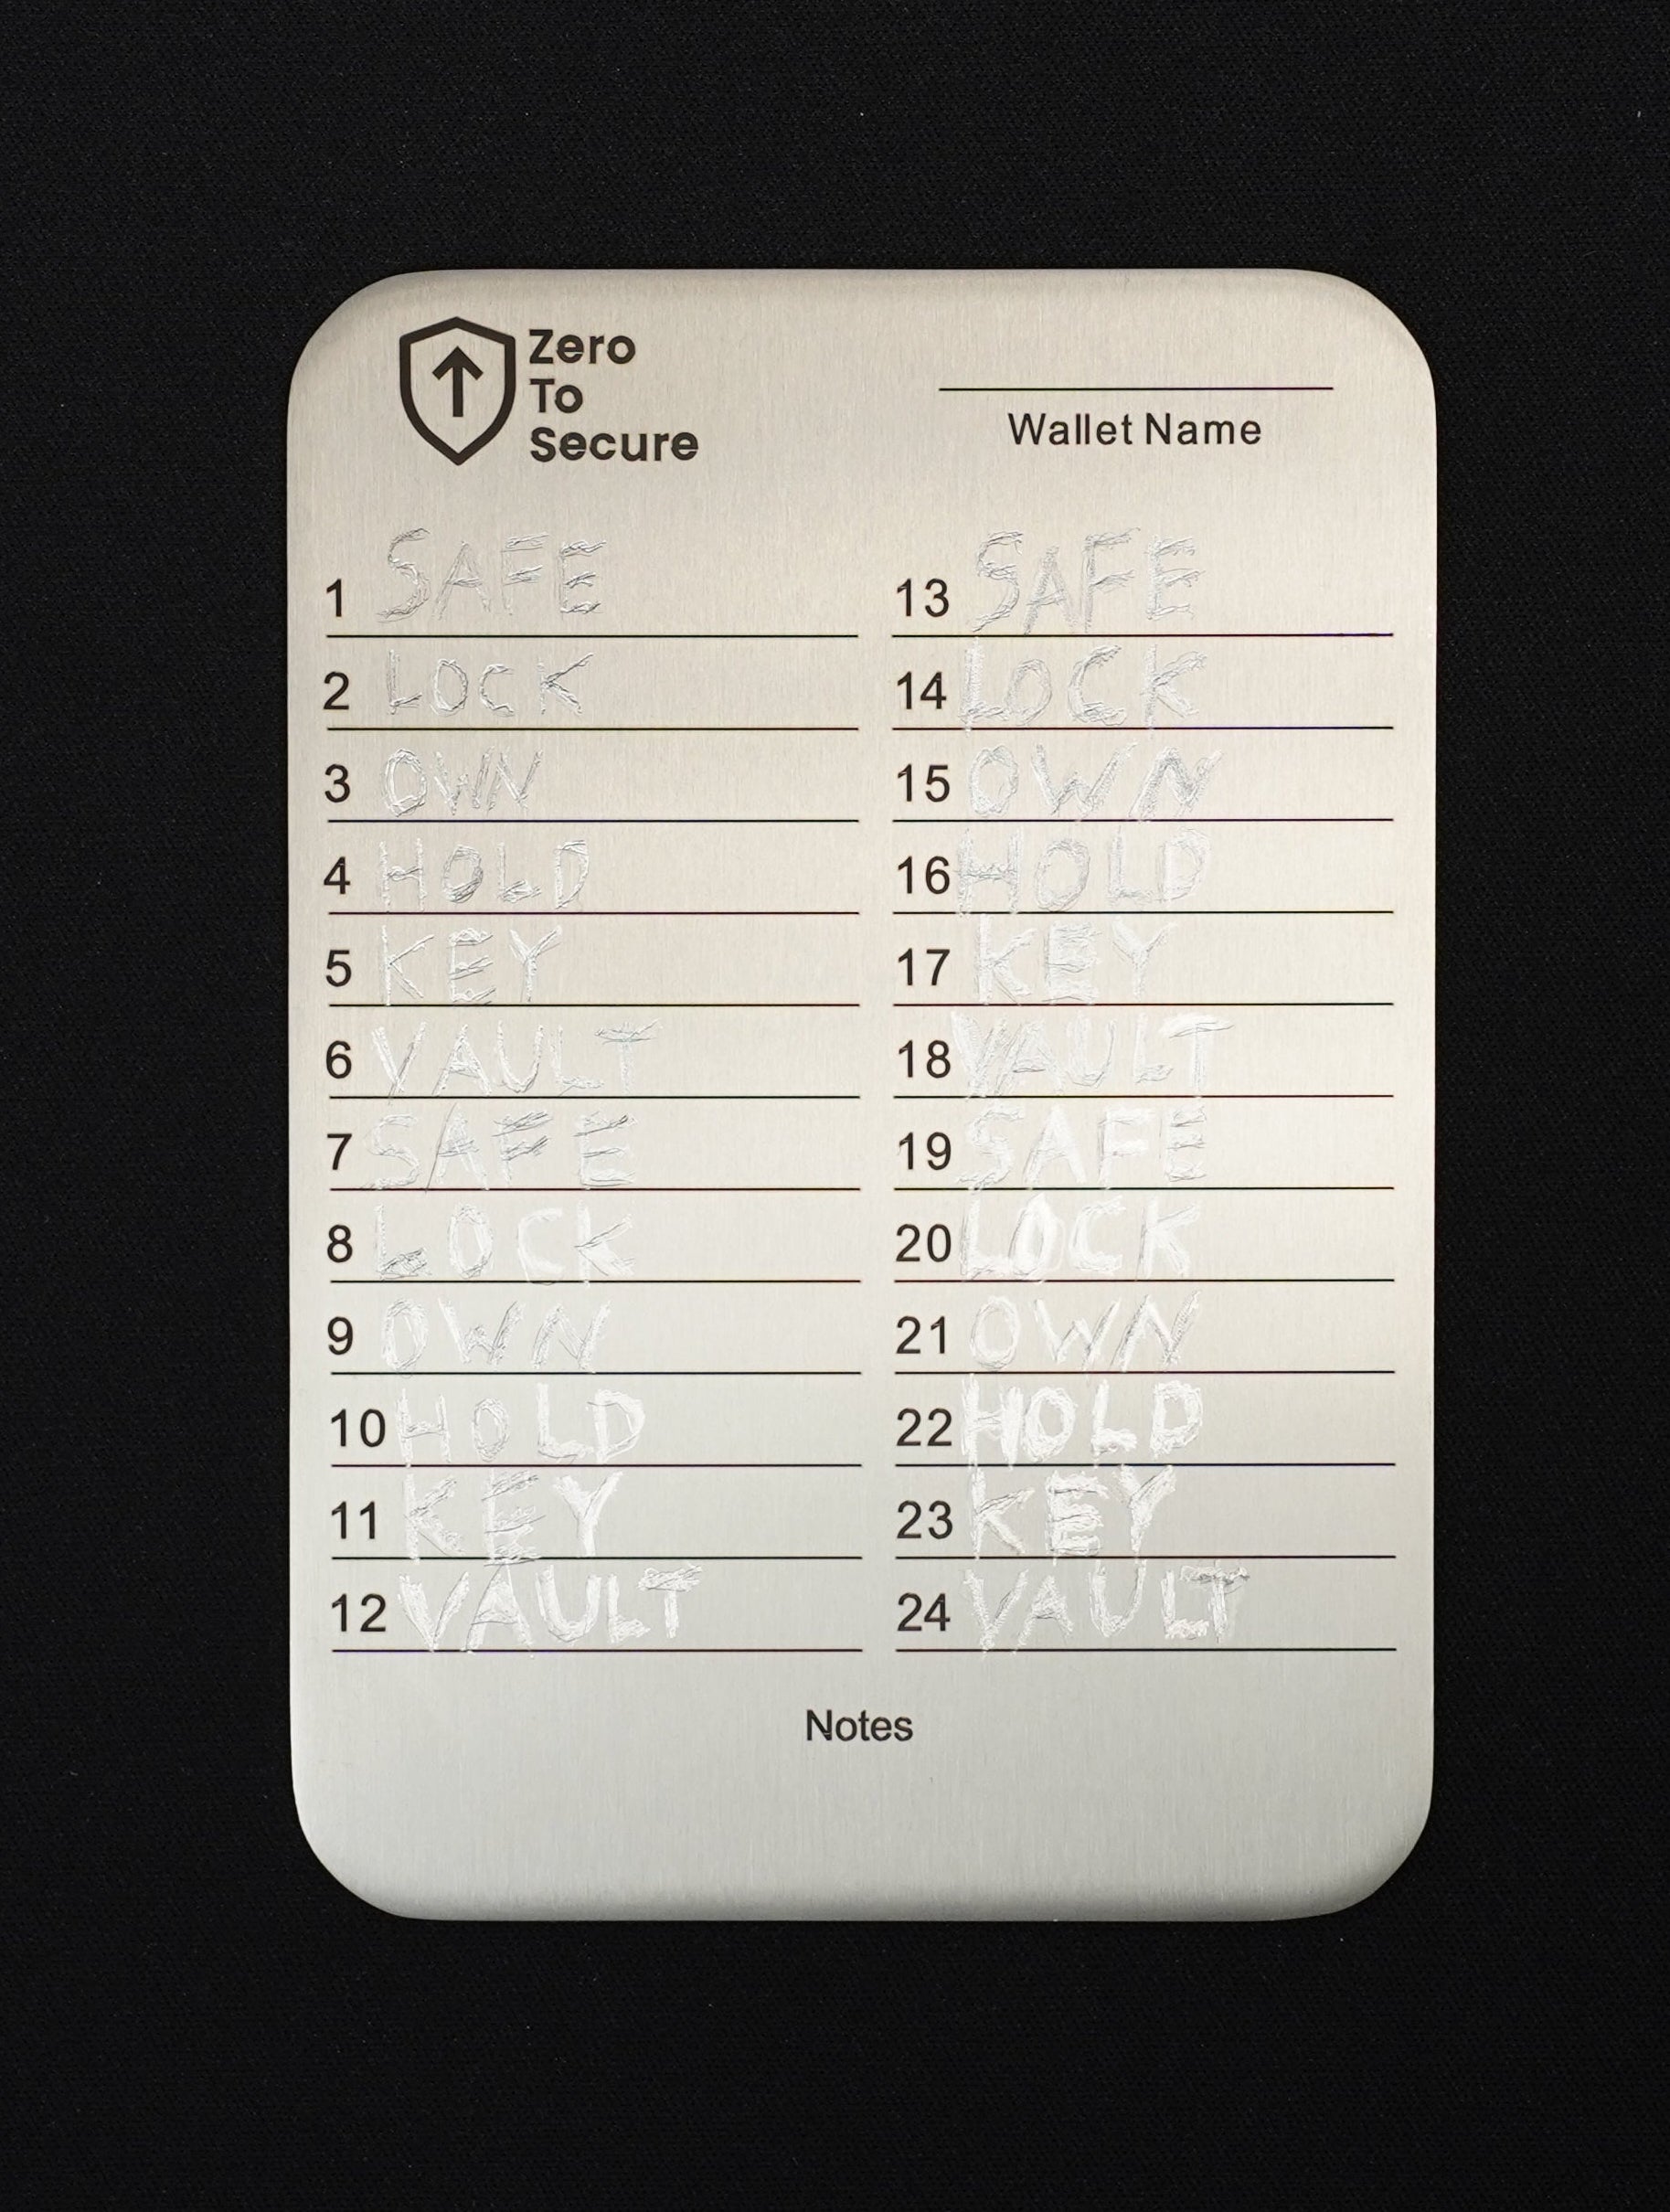 Zero
To
Secure
Wallet Name
1 SAFE
2 LOCK
3 OWN
4 HOLD
5 KEY
6 VAULT
7 SAFE
8 LOCK
9 OWN
10 HOLD
11 KEY
12 VAULT
13 SAFE
14 LOCK
15 OWN
16 HOLD
17 KEY
18 VAULT
19 SAFE
20 LOCK
21 OWN
22 HOLD
23 KEY
24 VAULT
Notes